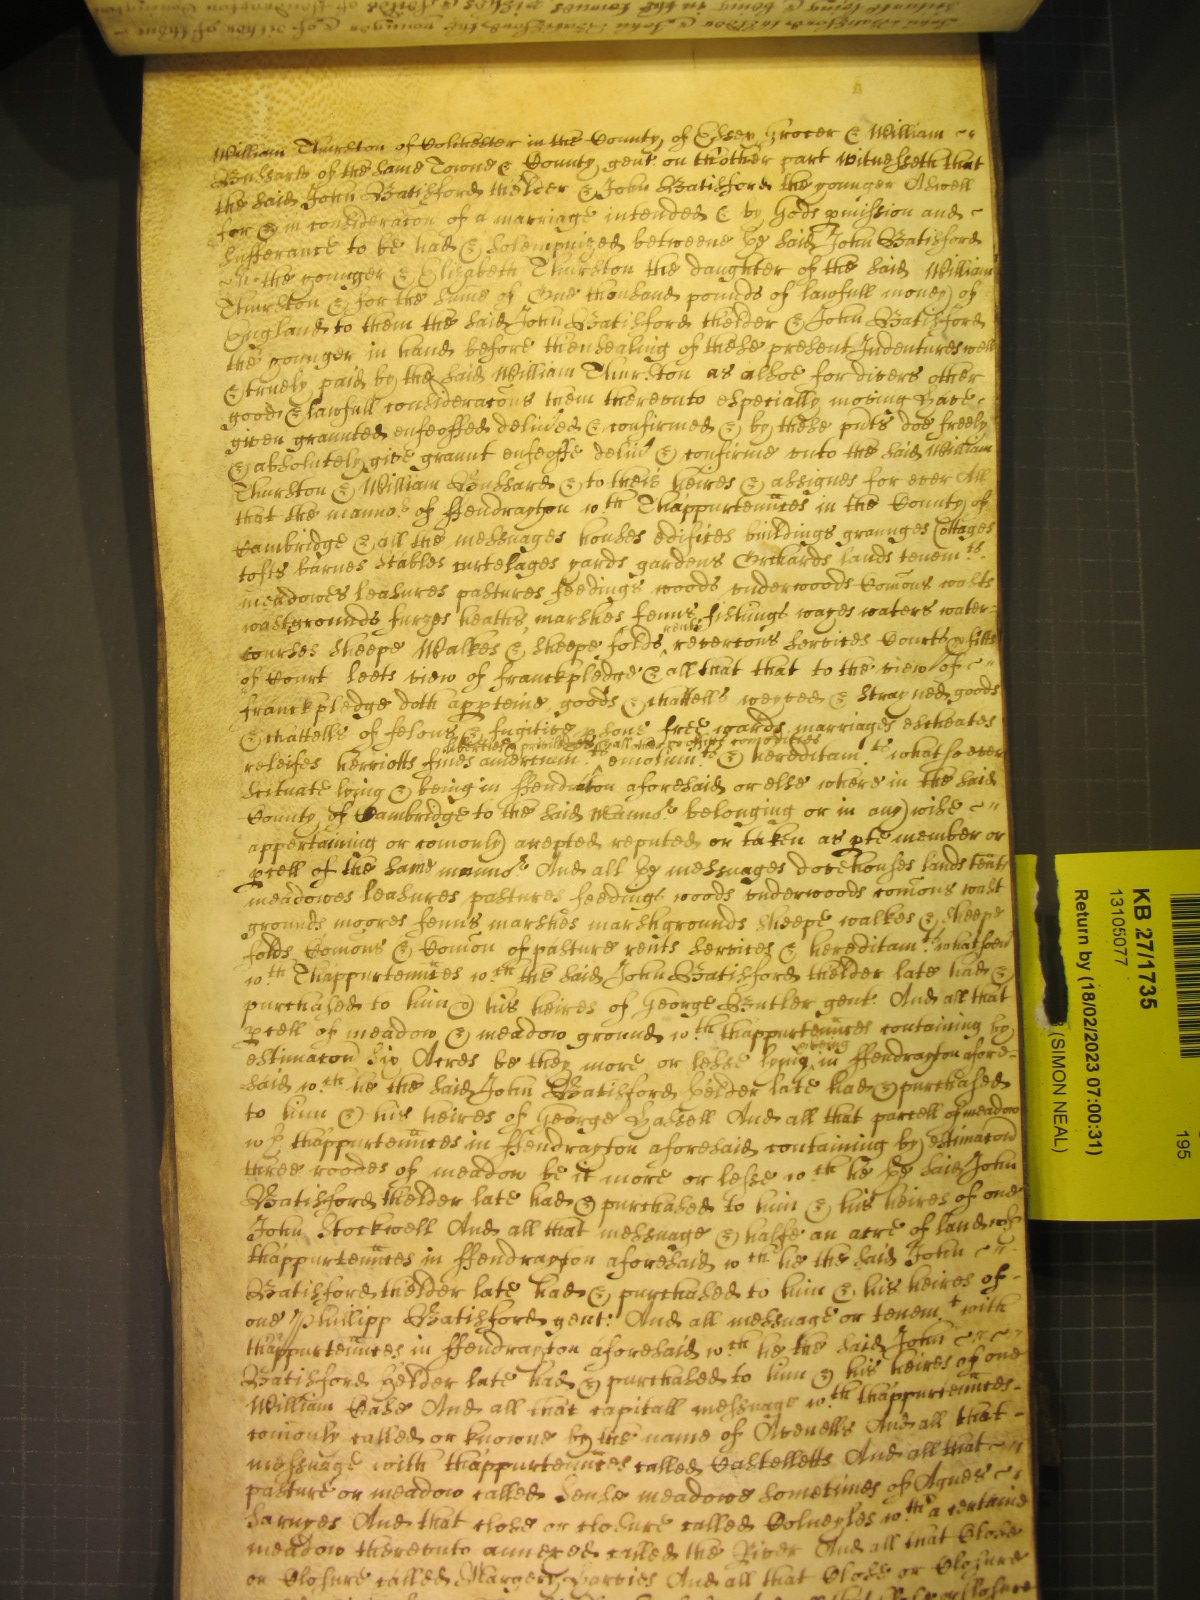 William Thurston of Colchester in the County of Essex Grocer & William
Bussard of the same Towne & County gent on thother part witnesseth that
the said John Batisford thelder & John Batisford the younger Aswell
for & in consideracon of a marriage intended & by Gods pmission and
sufferance to be had & solempnized betweene ye said John Batisford
the younger & Elizabeth Thurston the daughter of the said William
Thurston & for the sume of One thousand pounds of lawfull money of
England to them the said John Batisford thelder & John Batisford
the younger in hand before thensealing of these present Indentures well
& truely paid by the said William Thurston as alsoe for divers other
good & lawfull consideracons them thereunto especially moving have
given graunted enfeoffed delived & confirmed & by these pnts doe freely
& absolutely give graunt enfeoffe deliv & confirme unto the said William
Thurston & William Bussard & to theis heires & assignes for ever All
that the manno.r of ffendrayton w.th Thappurtennces in the County of
Cambridge & all the messuages houses edifices buildings graunges Cottages
tofts barnes stables curtelages yards gardens Orchards lands tenem.ts
meadowes leasures pastures feedings woods underwoods Comons wasts
wastgrounds furzes heaths marshes fenns fishings wayes waters water-
courses sheepe Walkes & sheepe folds rents revercons services Courts pfitts
of Court leets view of franckpledge & all that that to the view of
franckpledge doth apperteine goods & chattells weyved & strayned goods
& chattells of felons & fugitive psons free wards marriages escheates
releifes herriotts fines amerciam.ts emolum.ts & hereditam.ts whatsoever
scituate lying & being in ffendraton aforesaid or else where in the said
County of Cambridge to the said Manno.r belonging or in any wise
appertaining or comonly accepted reputed or taken as pte member or
pcell of the same manno.r And all ye messuages dovehouses lands tents
meadowes leasures pastures feedings woods underwoods comons wast
grounds moores fenns marshes marshgrounds sheepe walkes & sheepe
folds Comons & Comon of pasture rents services & hereditam.ts whatsoev
w.th Thappurtennces w.ch the said John Batisford thelder late had &
purchased to him & his heires of George Butler gent: And all that
pcell of meadow & meadow ground w.th thappurtennces containing by
estimacon six Acres be they more or lesse lying & being in ffendrayton afore-
said w.ch he the said John Batisford ye elder late had & purchased
to him & his heires of George Hassell And all that parcell of meadow
w.th thappurtennces in ffendrayton aforesaid containing by estimacon
three roodes of meadow be it more or lesse w.ch he ye said John
Batisford thelder late had & purchased to him & his heires of one
John Stockwell And all that messuage & halfe an acre of land wth
thappurtennces in ffendrayton aforesaid w.ch he the said John
Batisford thelder late had & purchased to him & his heires of
one Phillipp Batisford gent: And all messuage or tenem.t with
thappurtennces in ffendrayton aforesaid w.ch he the said John
Batisford yelder late had & purchased to him & his heires of one
William Case And all that capitall messuage w.th thappurtennces
comonly called or knowne by the name of Avenells And all that
messuage with thappurtennces called Castelletts And all that
pasture or meadow called Sense meadowe sometimes of Agnes
Barnges And that close or closure called Colneyles w.th a certaine
meadow thereunto annexed called the River And all that Close
or Closure called Margery And all that Close or Closure
KB 27/1735
13105077
Return by (18/02/2023 07:00:31)
(SIMON NEAL)
195